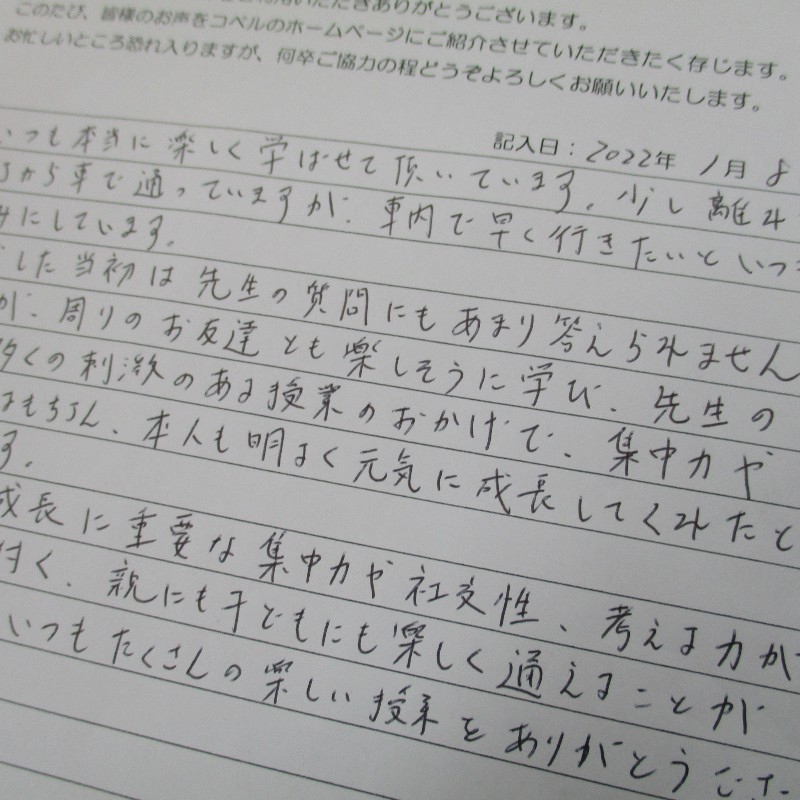 いただきありがとうございます。
このたび、皆様のお声をコペルのホームページにご紹介させていただきたく存じます。
お忙しいところ恐れ入りますが、何卒ご協力の程どうぞよろしくお願いいたします。
記入日：2022年 1月 8
いつも本当に楽しく学ばせて頂いています。少し離れ
から車で通っていますが、車内で早く行きたいといつ
にしています。
した当初は先生の質問にもあまり答えられません
が、周りのお友達とも楽しそうに学び、先生の
多くの刺激のある授業のおかげで、集中力や
はもちろん、本人も明るく元気に成長してくれたと
す。
成長に重要な集中力や社交性、考える力が
付く、親にも子どもにも楽しく通えることが
いつもたくさんの楽しい授業をありがとうござ